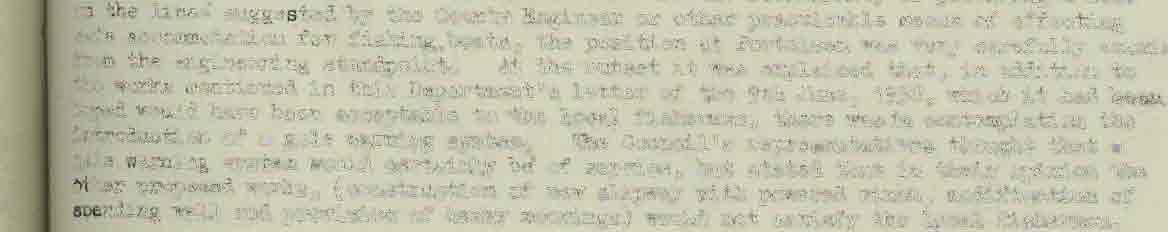 on the lines suggested by the County Engineer or other practicable means of effecting
safe accommodation for fishing boats, the position at Portnoo was very carefully
from the engineering standpoint. At the outset it was explained that, in addition to
the works mentioned in this Department's letter of the 9th June, 1938, which it had been
would have been acceptable to the local fishermen, there was in contemplation the
introduction of a gale warning system. The Council's representatives thought that a
gale warning system would certainly be of service, but stated that in their opinion the
other proposed works, (construction of new slipway with powered winch, modification of
spending well and provision of heavy moorings) would not satisfy the local fishermen.